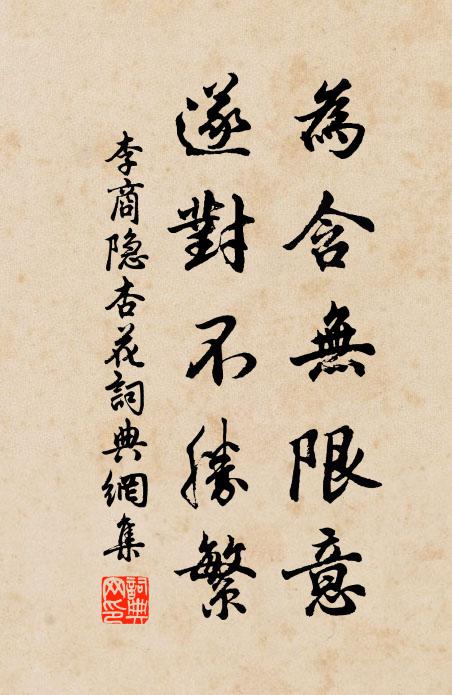 為含無限意
遂對不勝繁
李商隐杏花詞典網集
詞典网印